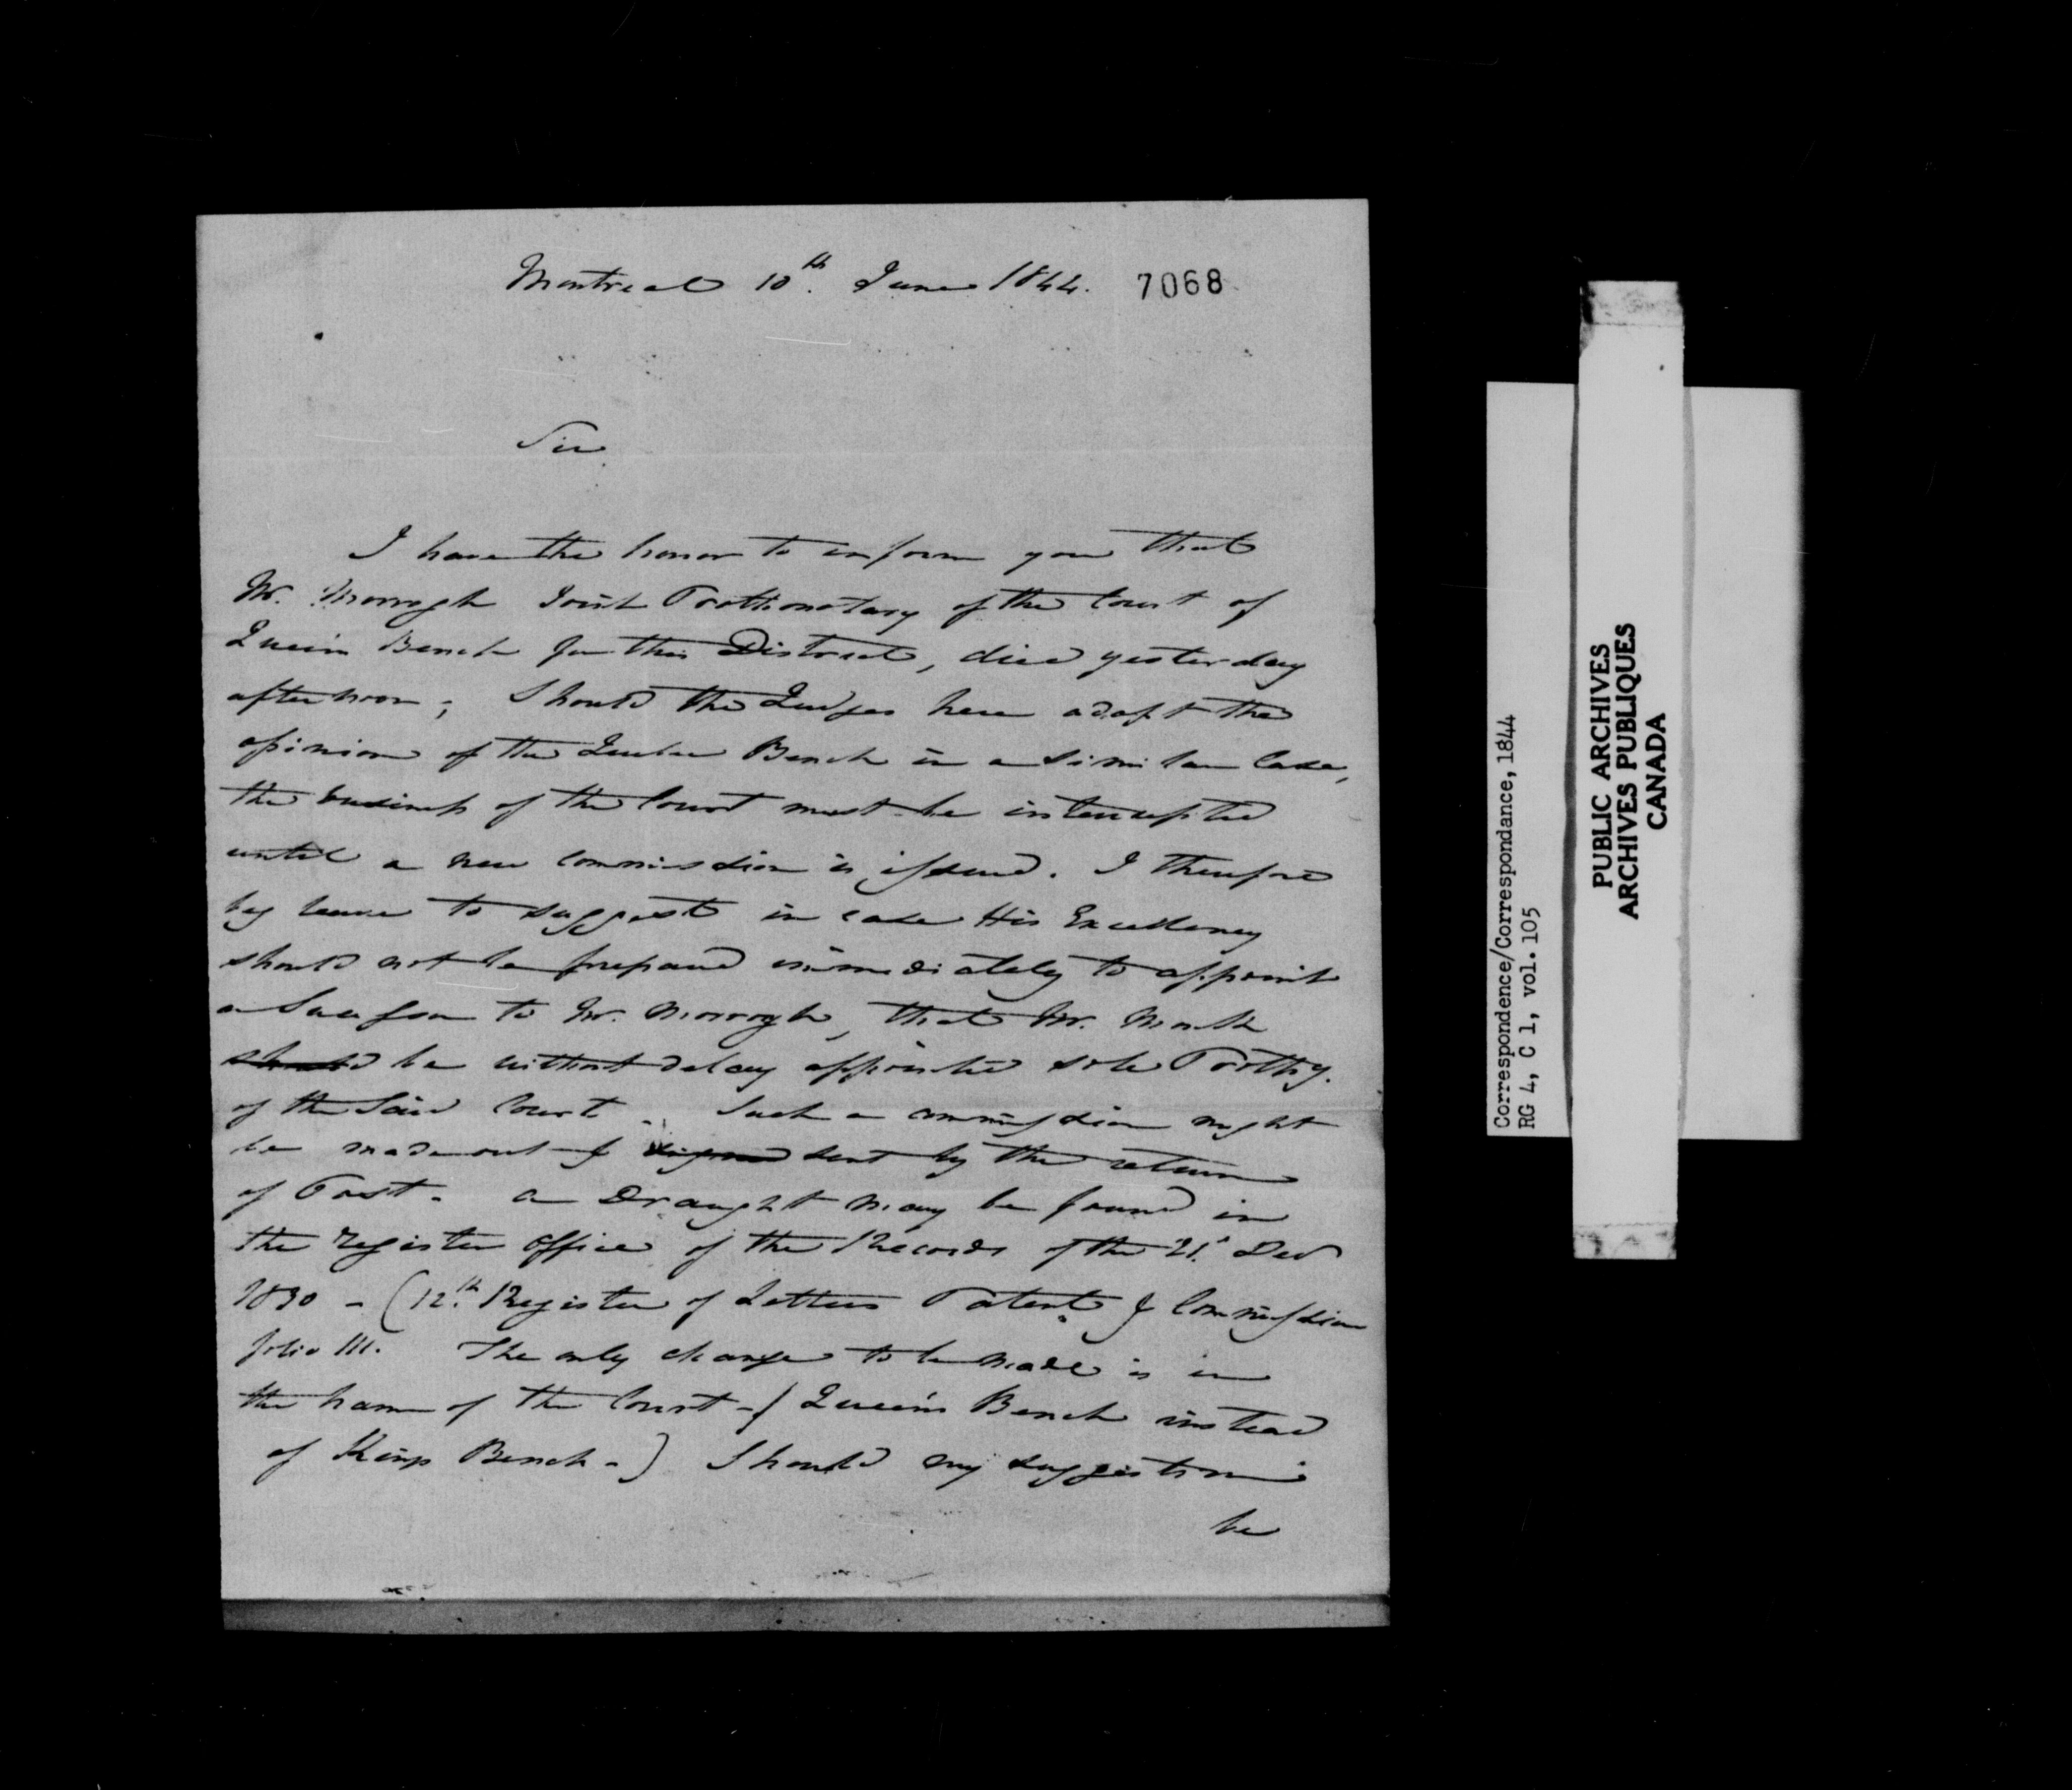 Montreal 10th. June 1844. 7068
Sir
I have the honor to inform you that
Mr. Morrogh Joint Prothonotary of the Court of
Queen's Bench for this District, died yesterday
afternoon; Should the Judges here adopt the
opinion of the Quebec Bench in a similar Case,
the business of the Court must be interrupted
until a new commission is issued. I therefore
beg leave to suggest in case His Excellency
should not be prepared immediately to appoint
a Successor to Mr. Morrogh, that Mr. Monk
should be without delay appointed sole Prothy.
of the Said Court. Such a commission might
be made out & signed sent by the return
of Post. a Draught may be found in
the register office of the Records of the 21st Decr
1830 - (12th. Register of Letters Patent & Commission
folio 111. The only change to be made is in
the name of the Court - (Queen's Bench instead
of Kings Bench -) Should my suggestion
be
Correspondence/Correspondance, 1844
RG 4, C 1, vol. 105
PUBLIC ARCHIVES
ARCHIVES PUBLIQUES
CANADA